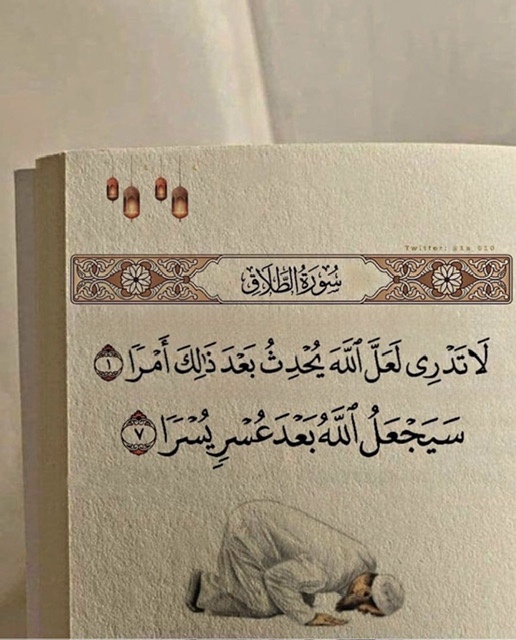 سُورَةُ الطَّلَاقِ
لَا تَدْرِى لَعَلَّ ٱللَّهَ يُحْدِثُ بَعْدَ ذَٰلِكَ أَمْرًا ١
سَيَجْعَلُ ٱللَّهُ بَعْدَ عُسْرٍ يُسْرًا ٧